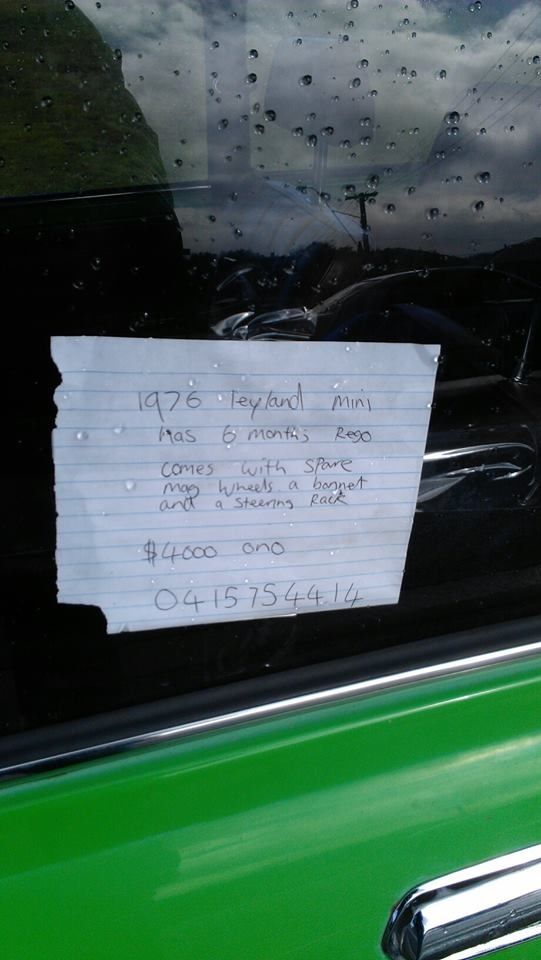 1976 leyland mini
has 6 months Rego
comes with spare
mag wheels a bonnet
and a steering Rack
$4000 ono
0415754414